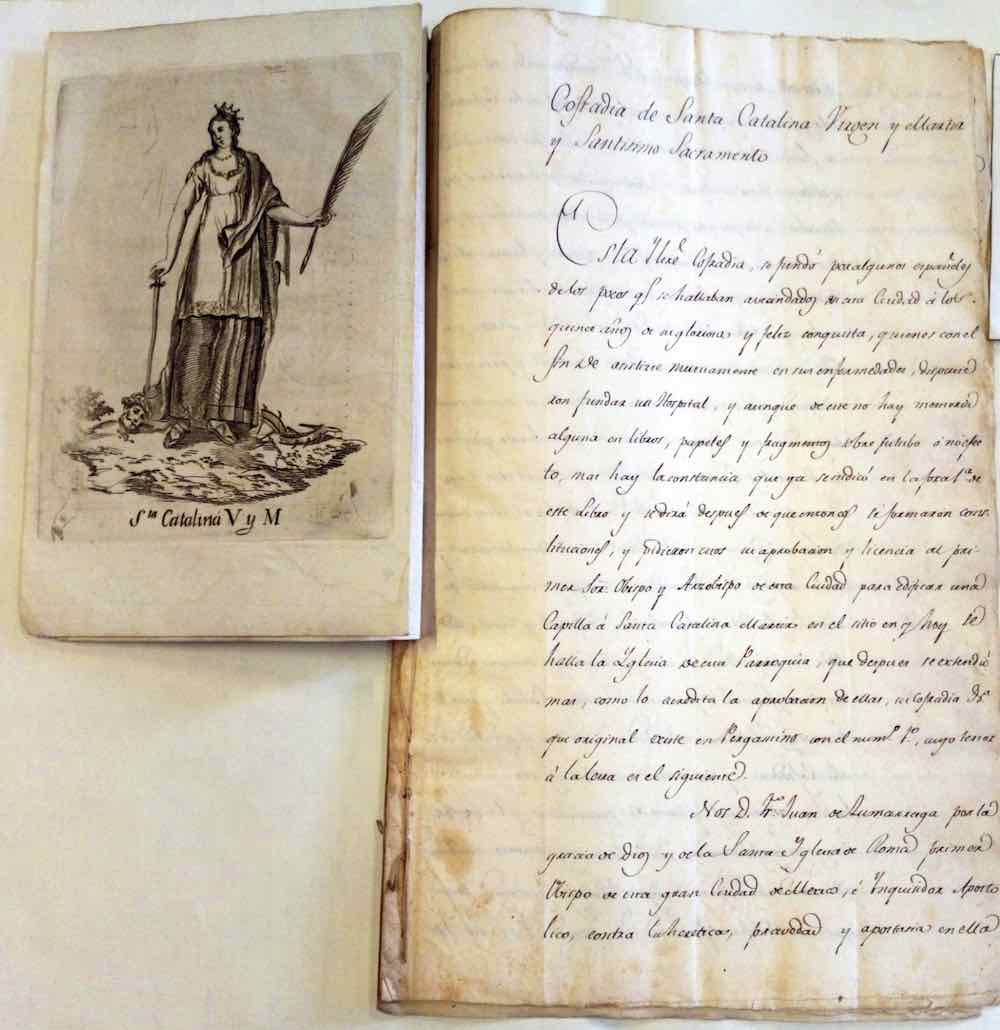 Sta Catalina V y M
Cofradia de Santa Catalina Virgen y Martir
y Santisimo Sacramento
Esta Ylтre Cofradia, se fundó por algunos españoles
de los pocos q.e se hallaban avecindados en esta Ciudad á los
quince años de su gloriosa, y feliz conquista, quienes con el
fin de asistirse mutuamente en sus enfermedades, dispusie
ron fundar un Hospital, y aunque de este no hay memoria
alguna en libros, papeles y fragmentos sobre si tubo ó nó efec
to, mas hay la constancia que ya se indicó en la de
este Libro y se dirá despues de que entonces se formaron cons
tituciones, y pidieron estos su aprobacion y licencia al pri-
mer Sor. Obispo y Arzobispo de esta Ciudad para edificar una
Capilla á Santa Catalina Martir en el sitio en q hoy se
halla la Yglesia de esta Parroquia, que despues se extendió
mas, como lo acredita la aprobacion de ellas, su Cofradia
que original existe en Pergamino con el num.o 1o, cuyo tenor
á la letra es el siguiente.
Nos D. Fr. Juan de Zumarraga por la
gracia de Dios y de la Santa Yglesia de Roma primer
Obispo de esta gran Ciudad de Mexico, é Ynquisidor Aposto
lico, contra la heretica, pravedad y apostasia en ella